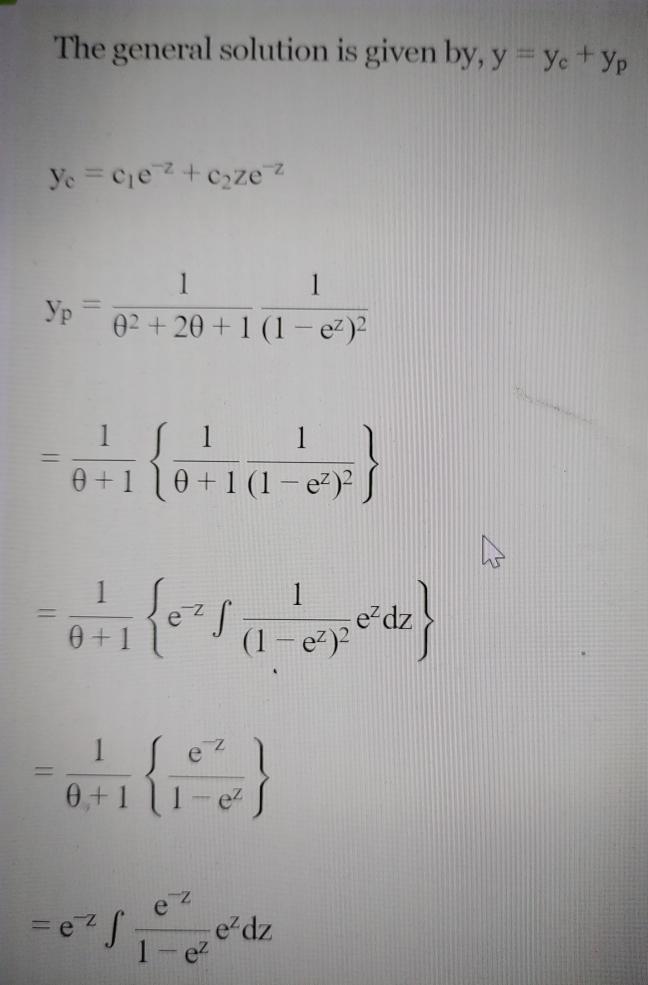 The general solution is given by, y = y_c + y_p
y_c = c₁e^{-z} + c₂ze^{-z}
y_p = \frac{1}{θ² + 2θ + 1} \frac{1}{(1 - e^z)²}
= \frac{1}{θ + 1} \left\{ \frac{1}{θ + 1} \frac{1}{(1 - e^z)²} \right\}
= \frac{1}{θ + 1} \left\{ e^{-z} ∫ \frac{1}{(1 - e^z)²} e^z dz \right\}
= \frac{1}{θ + 1} \left\{ \frac{e^{-z}}{1 - e^z} \right\}
= e^{-z} ∫ \frac{e^{-z}}{1 - e^z} e^z dz